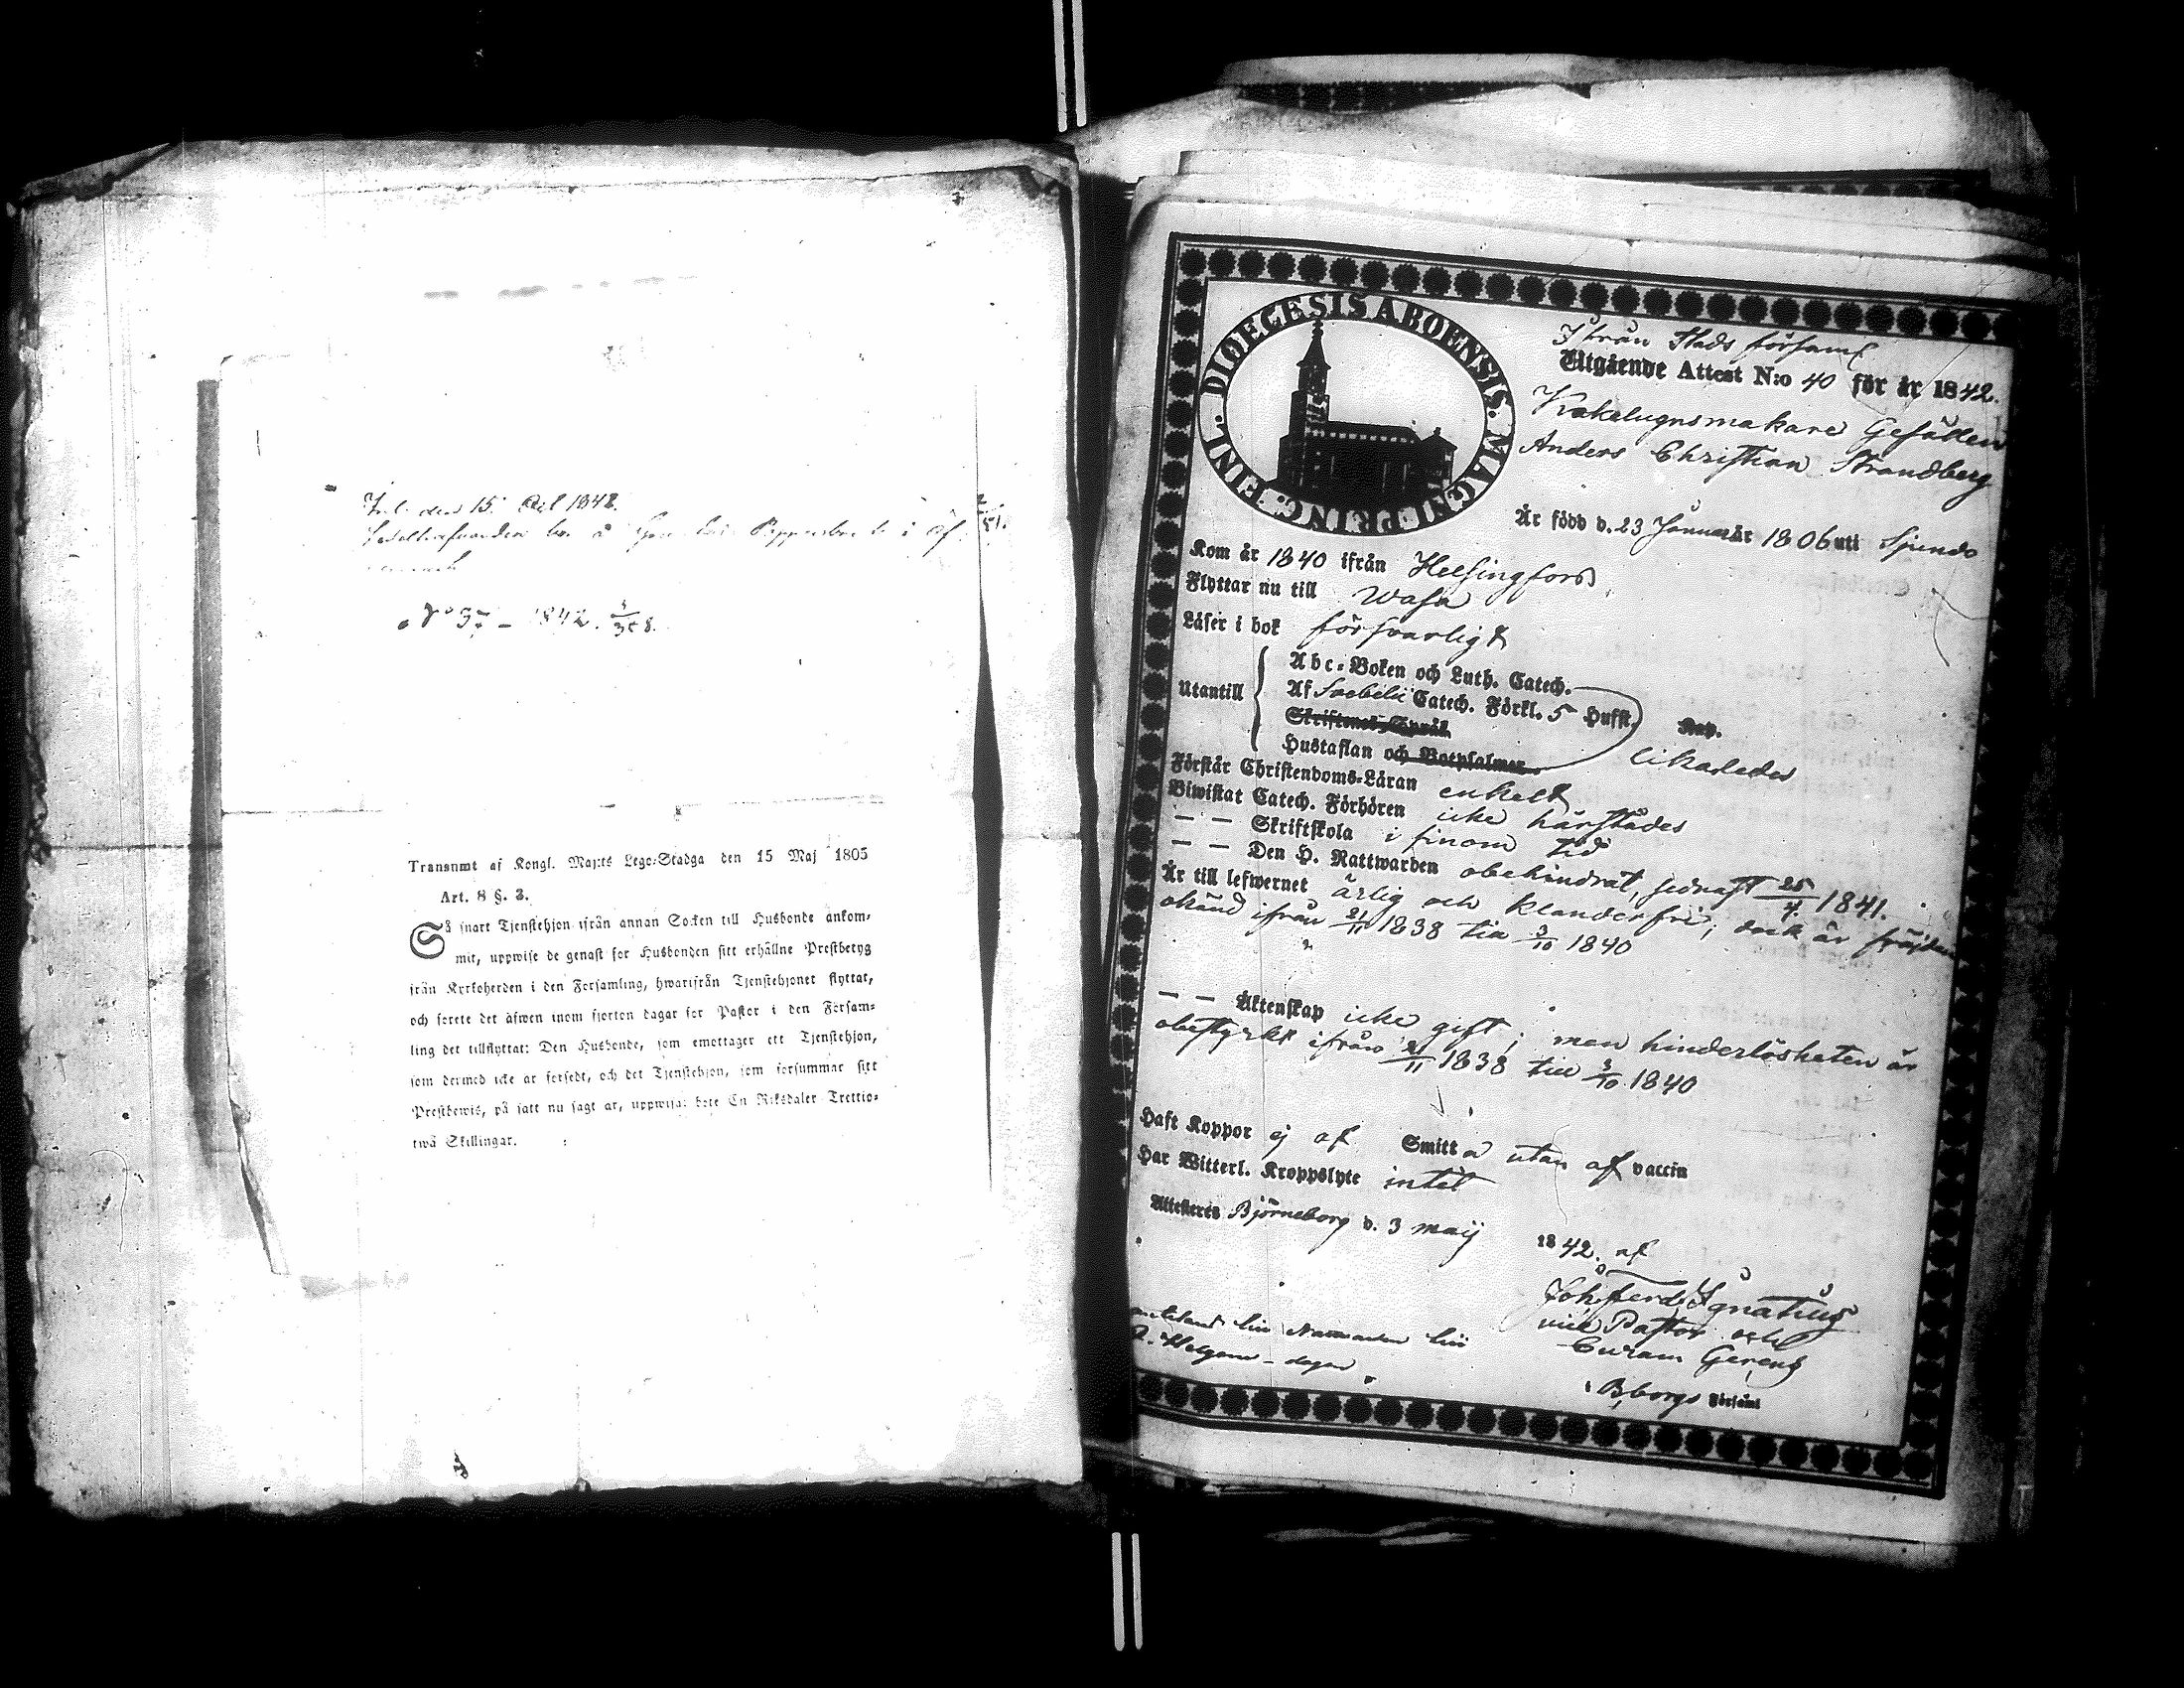 Inl. den 15 1842.
i
N:o 37 – 1842.
Transumt af Kongl. Maj:ts Lego-Stadga den 15 Maj 1805
Art. 8 §. 3.
Så snart Tjenstehjon ifrån annan Socken till Husbonde ankom-
mit, uppwise de genast för Husbonden sitt erhållne Prestbetyg
från Kyrkoherden i den Församling, hwarifrån Tjenstehjonet flyttat,
och förete det äfwen inom fjorton dagar för Pastor i den Försam-
ling det tillflyttat: Den Husbonde, som emottager ett Tjenstehjon,
som dermed icke är försedt, och det Tjenstehjon, som försummar sitt
Prestbewis, på sätt nu sagt är, uppwisa: böte En Riksdaler Trettio-
twå Skillingar.
DIOECESIS ABOENSIS. MAGNI PRINC. FINL.
Ifrån Stads församl
Utgående Attest N:o 40 för år 1842.
Kakelugnsmakare Gesällen
Anders Christian Strandberg
Är född d. 23 Januari år 1806 uti Sjundo
Kom år 1840 ifrån Helsingfors
Flyttar nu till Wasa
Läser i bok försvarligt
Utantill
Abc-Boken och Luth. Catech.
Af Svebelii Catech. Förkl. 5 Hufst.
Skriftenes Språk
Hustaflan och Botpsalmer
likaledes
Förstår Christendoms-Läran enkelt
Biwistat Catech. Förhören icke härstädes
— — Skriftskola i sinom tid
— — Den H. Nattwarden obehindrat, sednast 25/4 1841.
Är till lefwernet ärlig och klanderfri; dock är fräjden
okänd ifrån 21/11 1838 till 3/10 1840
— — Äktenskap icke gift; men hinderlösheten är
obestyrkt ifrån 21/11 1838 till 3/10 1840
Haft Koppor ej af Smitta utan af vaccin
Har Witterl. Kroppslyte intet
Attesteres Björneborg d. 3 maij 1842. af
Joh. Ferd. Ignatius
vice Pastor och
Curam Gerens
i Bborgs Församl
Nattvarden
dagen